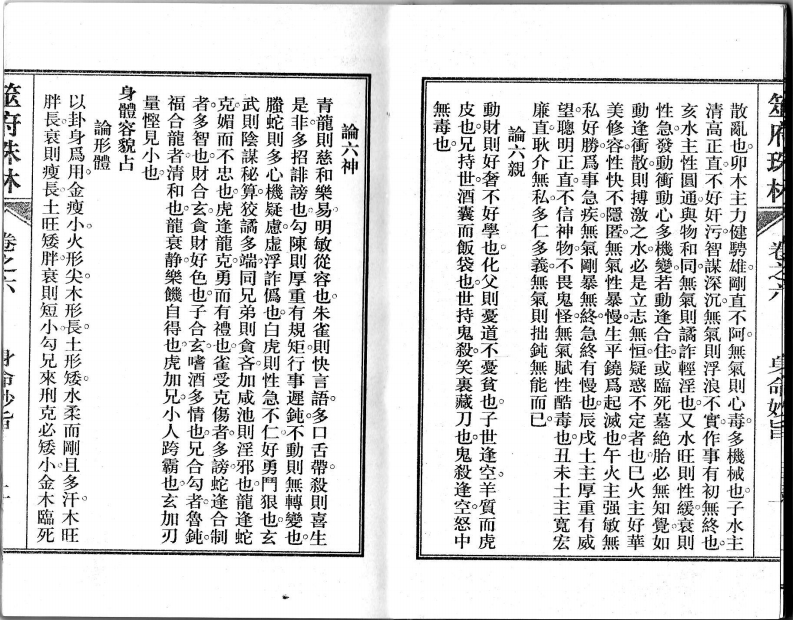 筮府珠林
卷之六
身命妙旨
散亂也。卯木主力健騁雄。剛直不阿。無氣則心毒多機械也。子水主
清高正直。不好奸污。智謀深沉。無氣則浮浪不實。作事有初無終也。
亥水主性圓通。與物和同。無氣則譎詐輕淫也。又水旺則性緩。衰則
性急。發動衝動。心多機變。若動逢合住。或臨死墓絶胎。必無知覺。如
動逢衝散。則搏激之水。必是立志無恒。疑惑不定者也。巳火主好華
美。修容。性快不隱匿。無氣性暴慢。生平鐃爲起滅也。午火主强敏無
私。好勝爲事急疾。無氣剛暴。無終急終有慢也。辰戌土主厚重有威
望。聰明正直。不信神物。不畏鬼怪。無氣賦性酷毒也。丑未土主寬宏
廉直耿介。無私多仁多義。無氣則拙鈍無能而已。
論六親
動財則好奢不好學也。化父則憂道不憂貧也。子世逢空。羊質而虎
皮也。兄持世。酒囊而飯袋也。世持鬼殺。笑裏藏刀也。鬼殺逢空。怒中
無毒也。
論六神
青龍則慈和樂易。明敏從容也。朱雀則快言語。多口舌。帶殺則喜生
是非。多招誹謗也。勾陳則厚重有規矩。行事遲鈍。不動則無轉變也。
螣蛇則多心機疑慮。虛浮詐僞也。白虎則性急不仁。好勇鬥狠也。玄
武則陰謀秘算。狡譎多端。同兄弟則貪吝。加咸池則淫邪也。龍逢蛇
克。媚而不忠也。虎逢龍克。勇而有禮也。雀受克傷者多謗。蛇逢合制
者多智也。財合玄。貪財好色也。子合玄。嗜酒多情也。兄合勾者魯鈍。
福合龍者清和也。龍衰静。樂饑自得也。虎加兄。小人跨霸也。玄加刃。
量慳見小也。
身體容貌占
論形體
以卦身爲用。金瘦小。火形尖。木形長。土形矮。水柔而剛。且多汗。木旺
胖長。衰則瘦長。土旺矮胖。衰則短小。勾兄來刑克必矮小。金木臨死
筮府珠林
卷之六
身命妙旨